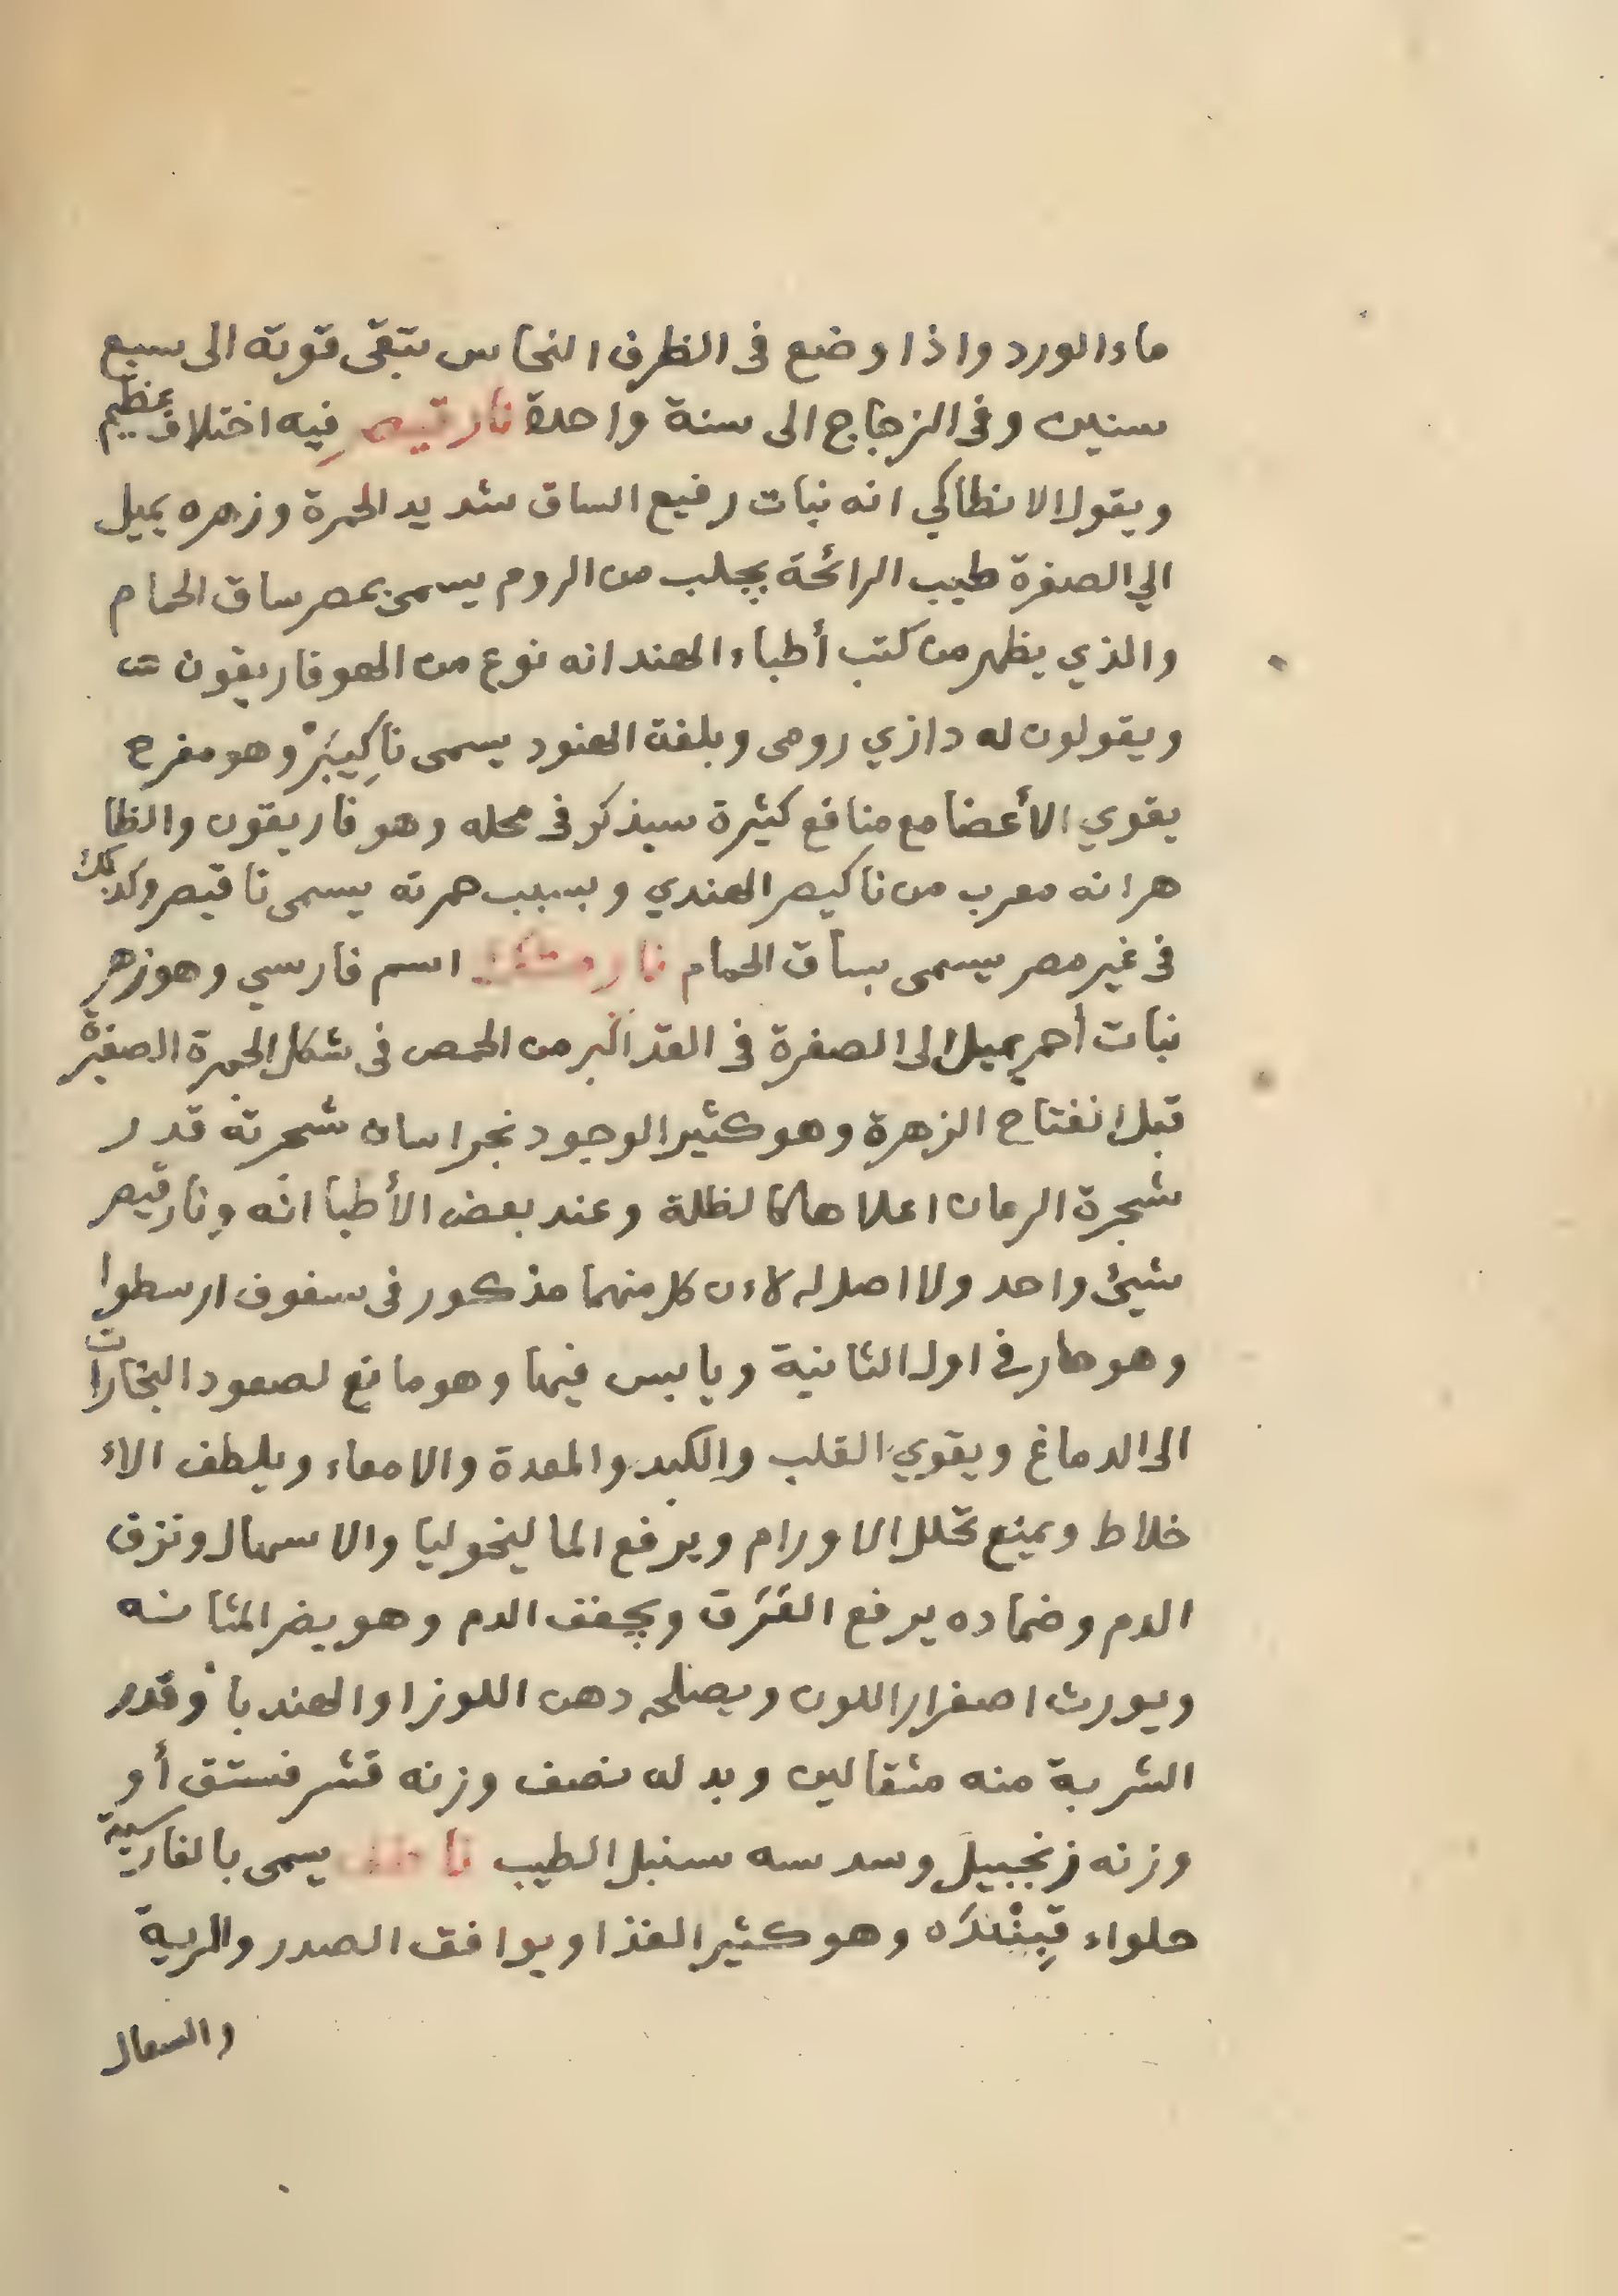 ماء الورد واذا وضع فى الظرف النحاس تبقى قوته الى سبع
سنين وفى الزجاج الى سنة واحدة نارقيصر فيه اختلاف عظيم
ويقول الانطاكي انه نبات رفيع الساق شديد الحمرة وزهره يميل
الي الصفرة طيب الرائحة يجلب من الروم يسمى بمصر ساق الحمام
والذي يظهر من كتب أطباء الهند انه نوع من الهوفاريقون
ويقولون له دازي رومى وبلغة الهنود يسمى وهو مفرح
يقوي الأعضا مع منافع كثيرة سيذكر فى محله وهو فاريقون والظا
هر انه معرب من ناكيصر الهندي وبسبب حمرته يسمى ناقيصر وكذلك
فى غير مصر يسمى بساق الحمام نارمشك اسم فارسي وهو زهر
نبات أحمر يميل الى الصفرة فى القد أكبر من الحمص فى شكل الجمرة الصغيرة
قبل انفتاح الزهرة وهو كثير الوجود بخراسان شجرته قدر
شجرة الرمان اعلاها كالظلة وعند بعض الأطبا انه ونارقيصر
شيئ واحد ولا اصل له لاءن كل منهما مذكور فى سفوف ارسطوا
وهو حار في اول الثانية ويابس فيها وهو مانع لصعود البخارات
الى الدماغ ويقوي القلب والكبد والمعدة والامعاء ويلطف الاء
خلاط ويمنع تحلل الاورام ويرفع الماليخوليا والاسهال ونزف
الدم وضماده يرفع العَرَق ويجفف الدم وهو يضر المثانه
ويورث اصفرار اللون ويصلحه دهن اللوز او الهندبا وقدر
الشربة منه مثقالين وبدله نصف وزنه قشر فستق أو
وزنه زنجبيل وسدسه سنبل الطيب ناطف يسمى بالفارسية
حلواء وهو كثير الغذا ويوافق الصدر والرية
والسعال